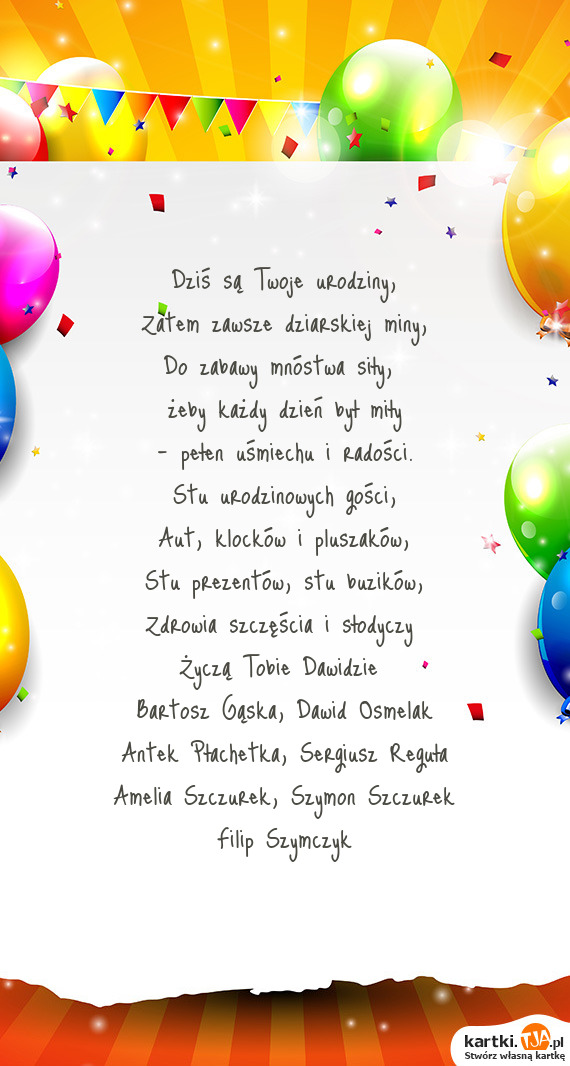 Dziś są Twoje urodziny,
Zatem zawsze dziarskiej miny,
Do zabawy mnóstwa siły,
żeby każdy dzień był miły
- pełen uśmiechu i radości.
Stu urodzinowych gości,
Aut, klocków i pluszaków,
Stu prezentów, stu buzików,
Zdrowia szczęścia i słodyczy
Życzą Tobie Dawidzie
Bartosz Gąska, Dawid Osmelak
Antek Płachetka, Sergiusz Reguła
Amelia Szczurek, Szymon Szczurek
Filip Szymczyk
kartki.TJA.pl
Stwórz własną kartkę